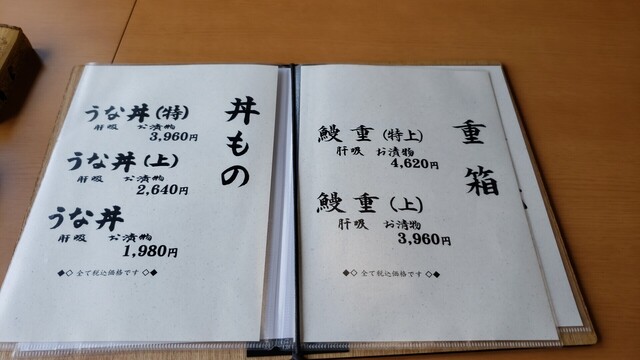 丼もの
うな丼(特)
肝吸 お漬物
3,960円
うな丼(上)
肝吸 お漬物
2,640円
うな丼
肝吸 お漬物
1,980円
◆◇ 全て税込価格です ◇◆
重箱
鰻重(特上)
肝吸 お漬物
4,620円
鰻重(上)
肝吸 お漬物
3,960円
◆◇ 全て税込価格です ◇◆